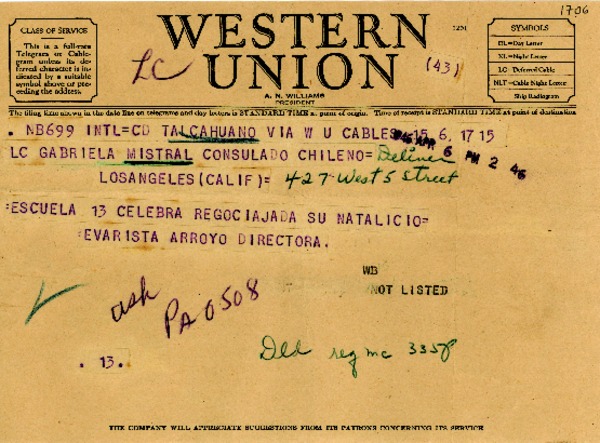 1706
CLASS OF SERVICE
This is a full-rate
Telegram or Cable-
gram unless its de-
ferred character is in-
dicated by a suitable
symbol above or pre-
ceding the address.
WESTERN
UNION
1251
LC
(43)
A. N. WILLIAMS
PRESIDENT
SYMBOLS
DL=Day Letter
NL=Night Letter
LC=Deferred Cable
NLT=Cable Night Letter
Ship Radiogram
The filing time shown in the date line on telegrams and day letters is STANDARD TIME at point of origin. Time of receipt is STANDARD TIME at point of destination
. NB699 INTL=CD TALCAHUANO VIA W U CABLES 15 6. 1715
APR 6 PM 2 46
LC GABRIELA MISTRAL CONSULADO CHILENO= Deliver
LOSANGELES (CALIF)= 427 West 5 Street
=ESCUELA 13 CELEBRA REGOCIAJADA SU NATALICIO=
=EVARISTA ARROYO DIRECTORA.
WB
NOT LISTED
ush
PA 0508
. 13.
Dld reg mc 3358
THE COMPANY WILL APPRECIATE SUGGESTIONS FROM ITS PATRONS CONCERNING ITS SERVICE